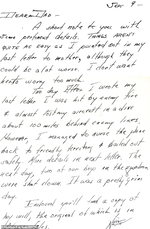 Jan 9 -
Dear Dad -
A short note to you with
some personal details. Things aren't
quite as easy as I pointed out in my
last letter to mother, although they
could be a lot worse. I don't want
her to worry too much.
Two day after I wrote my
last letter I was hit by enemy fire
& almost lost my aircraft in a dive
about 100 miles behind enemy lines.
However, I managed to nurse the plane
back to friendly territory & bailed out
safely. More details in next letter. The
next day, two of our boys in the squadron
were shot down. It was a pretty grim
day.
Enclosed you'll find a copy of
my will, the original of which is in